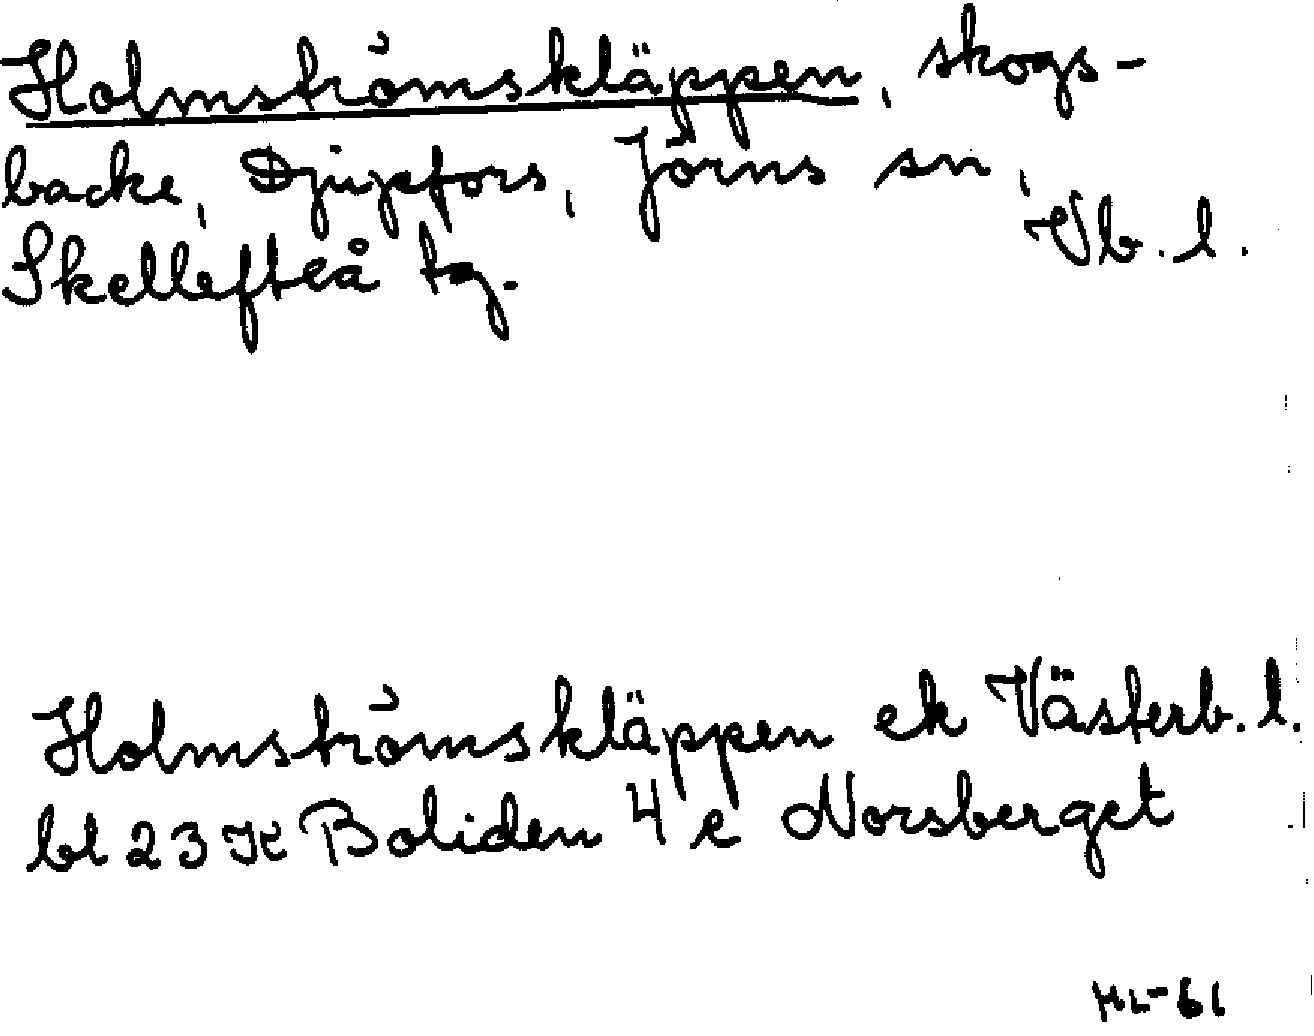 Holmströmskläppen, skogs-
backe, Djupfors, Jörns sn,
Vb. l.
Skellefteå tg.
Holmströmskläppen ek Västerb. l.
bl 23 K Boliden 4 e Norsberget
HL-61